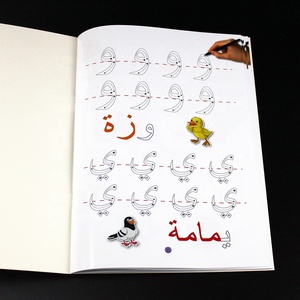 و و و و
و و و و
وزة
ي ي ي ي
ي ي ي ي
يمامة